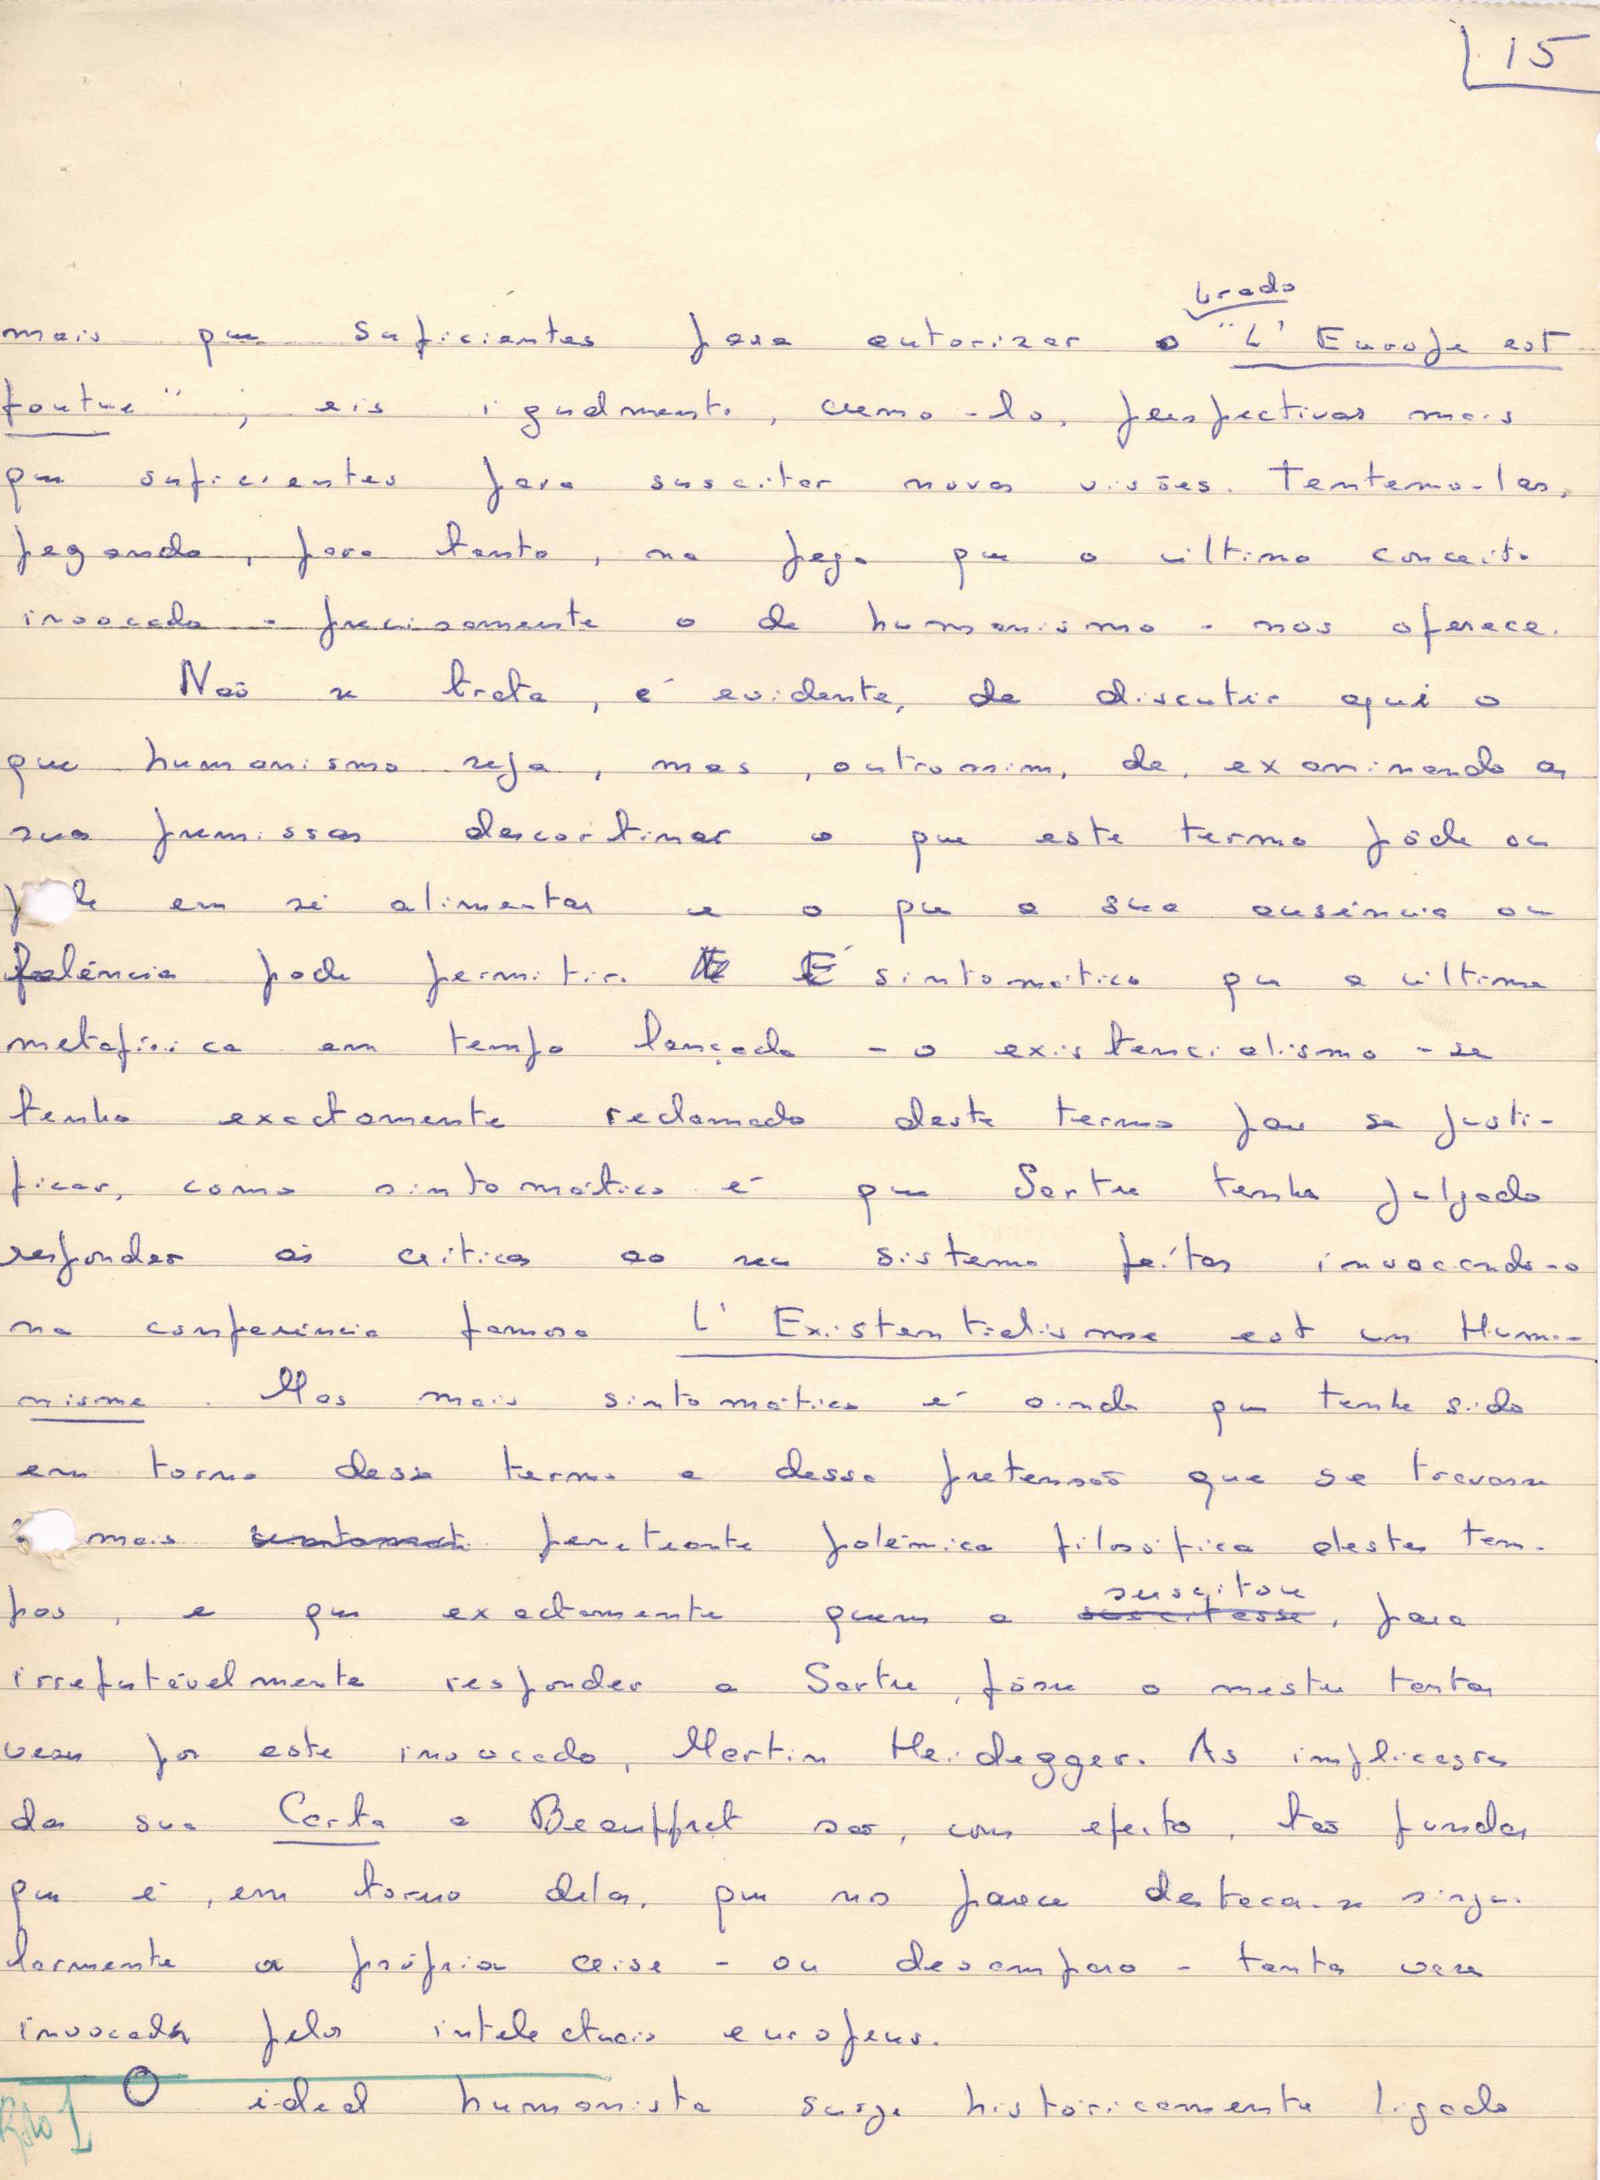 15
brado
mais que suficientes para autorizar o "L'Europe est
foutue"; eis igualmente, cremo-lo, perspectivas mais
que suficientes para suscitar novas visões. Tentemo-las,
pegando, para tanto, na pega que o último conceito
invocado - precisamente o de humanismo - nos oferece.
Não se trata, é evidente, de discutir aqui o
que humanismo seja, mas, outrossim, de, examinando as
suas premissas descortinar o que este termo pôde ou
pode em si alimentar e o que a sua ausência ou
falência pode permitir. É sintomático que a última
metafísica em tempo lançada - o existencialismo - se
tenha exactamente reclamado deste termo para se justi-
ficar, como sintomático é que Sartre tenha julgado
responder às críticas ao seu sistema feitas invocando-o
na conferência famosa L'Existentialisme est un Huma-
nisme. Mas mais sintomático é ainda que tenha sido
em torno desse termo e dessa pretensão que se travasse
a mais penetrante polémica filosófica destes tem-
pos, e que exactamente quem a suscitou, para
irrefutàvelmente responder a Sartre, fôsse o mestre tantas
vezes por este invocado, Martin Heidegger. As implicações
da sua Carta a Beauffret são, com efeito, tão fundas
que é, em torno delas, que nos parece destacar-se singu-
larmente a própria crise - ou desamparo - tantas vezes
invocada pelos intelectuais europeus.
O ideal humanista surge històricamente ligado